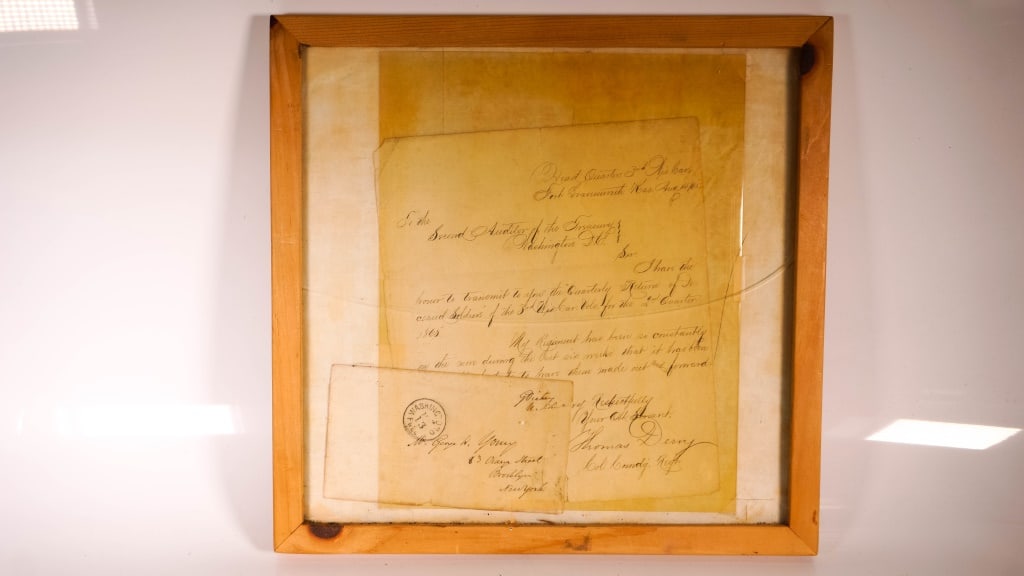 Head Quarters 3rd Wis Cav
Fort Leavenworth Kas Aug
To the
Second Auditor of the Treasury
Washington D.C.
Sir
I have the
honor to transmit to you the Quarterly Return of De
ceased Soldiers of the 3rd Wis Cav Vols for the 2nd Quarter
1865
My Regiment has been so constantly
on the during the last six that it has been
to have them made out and forward
Respectfully
Your Obt Servant
Thomas Derry
Col Comdg Regt
WASHINGTON
Mr George W. Young
83 Orange Street
Brooklyn
New York